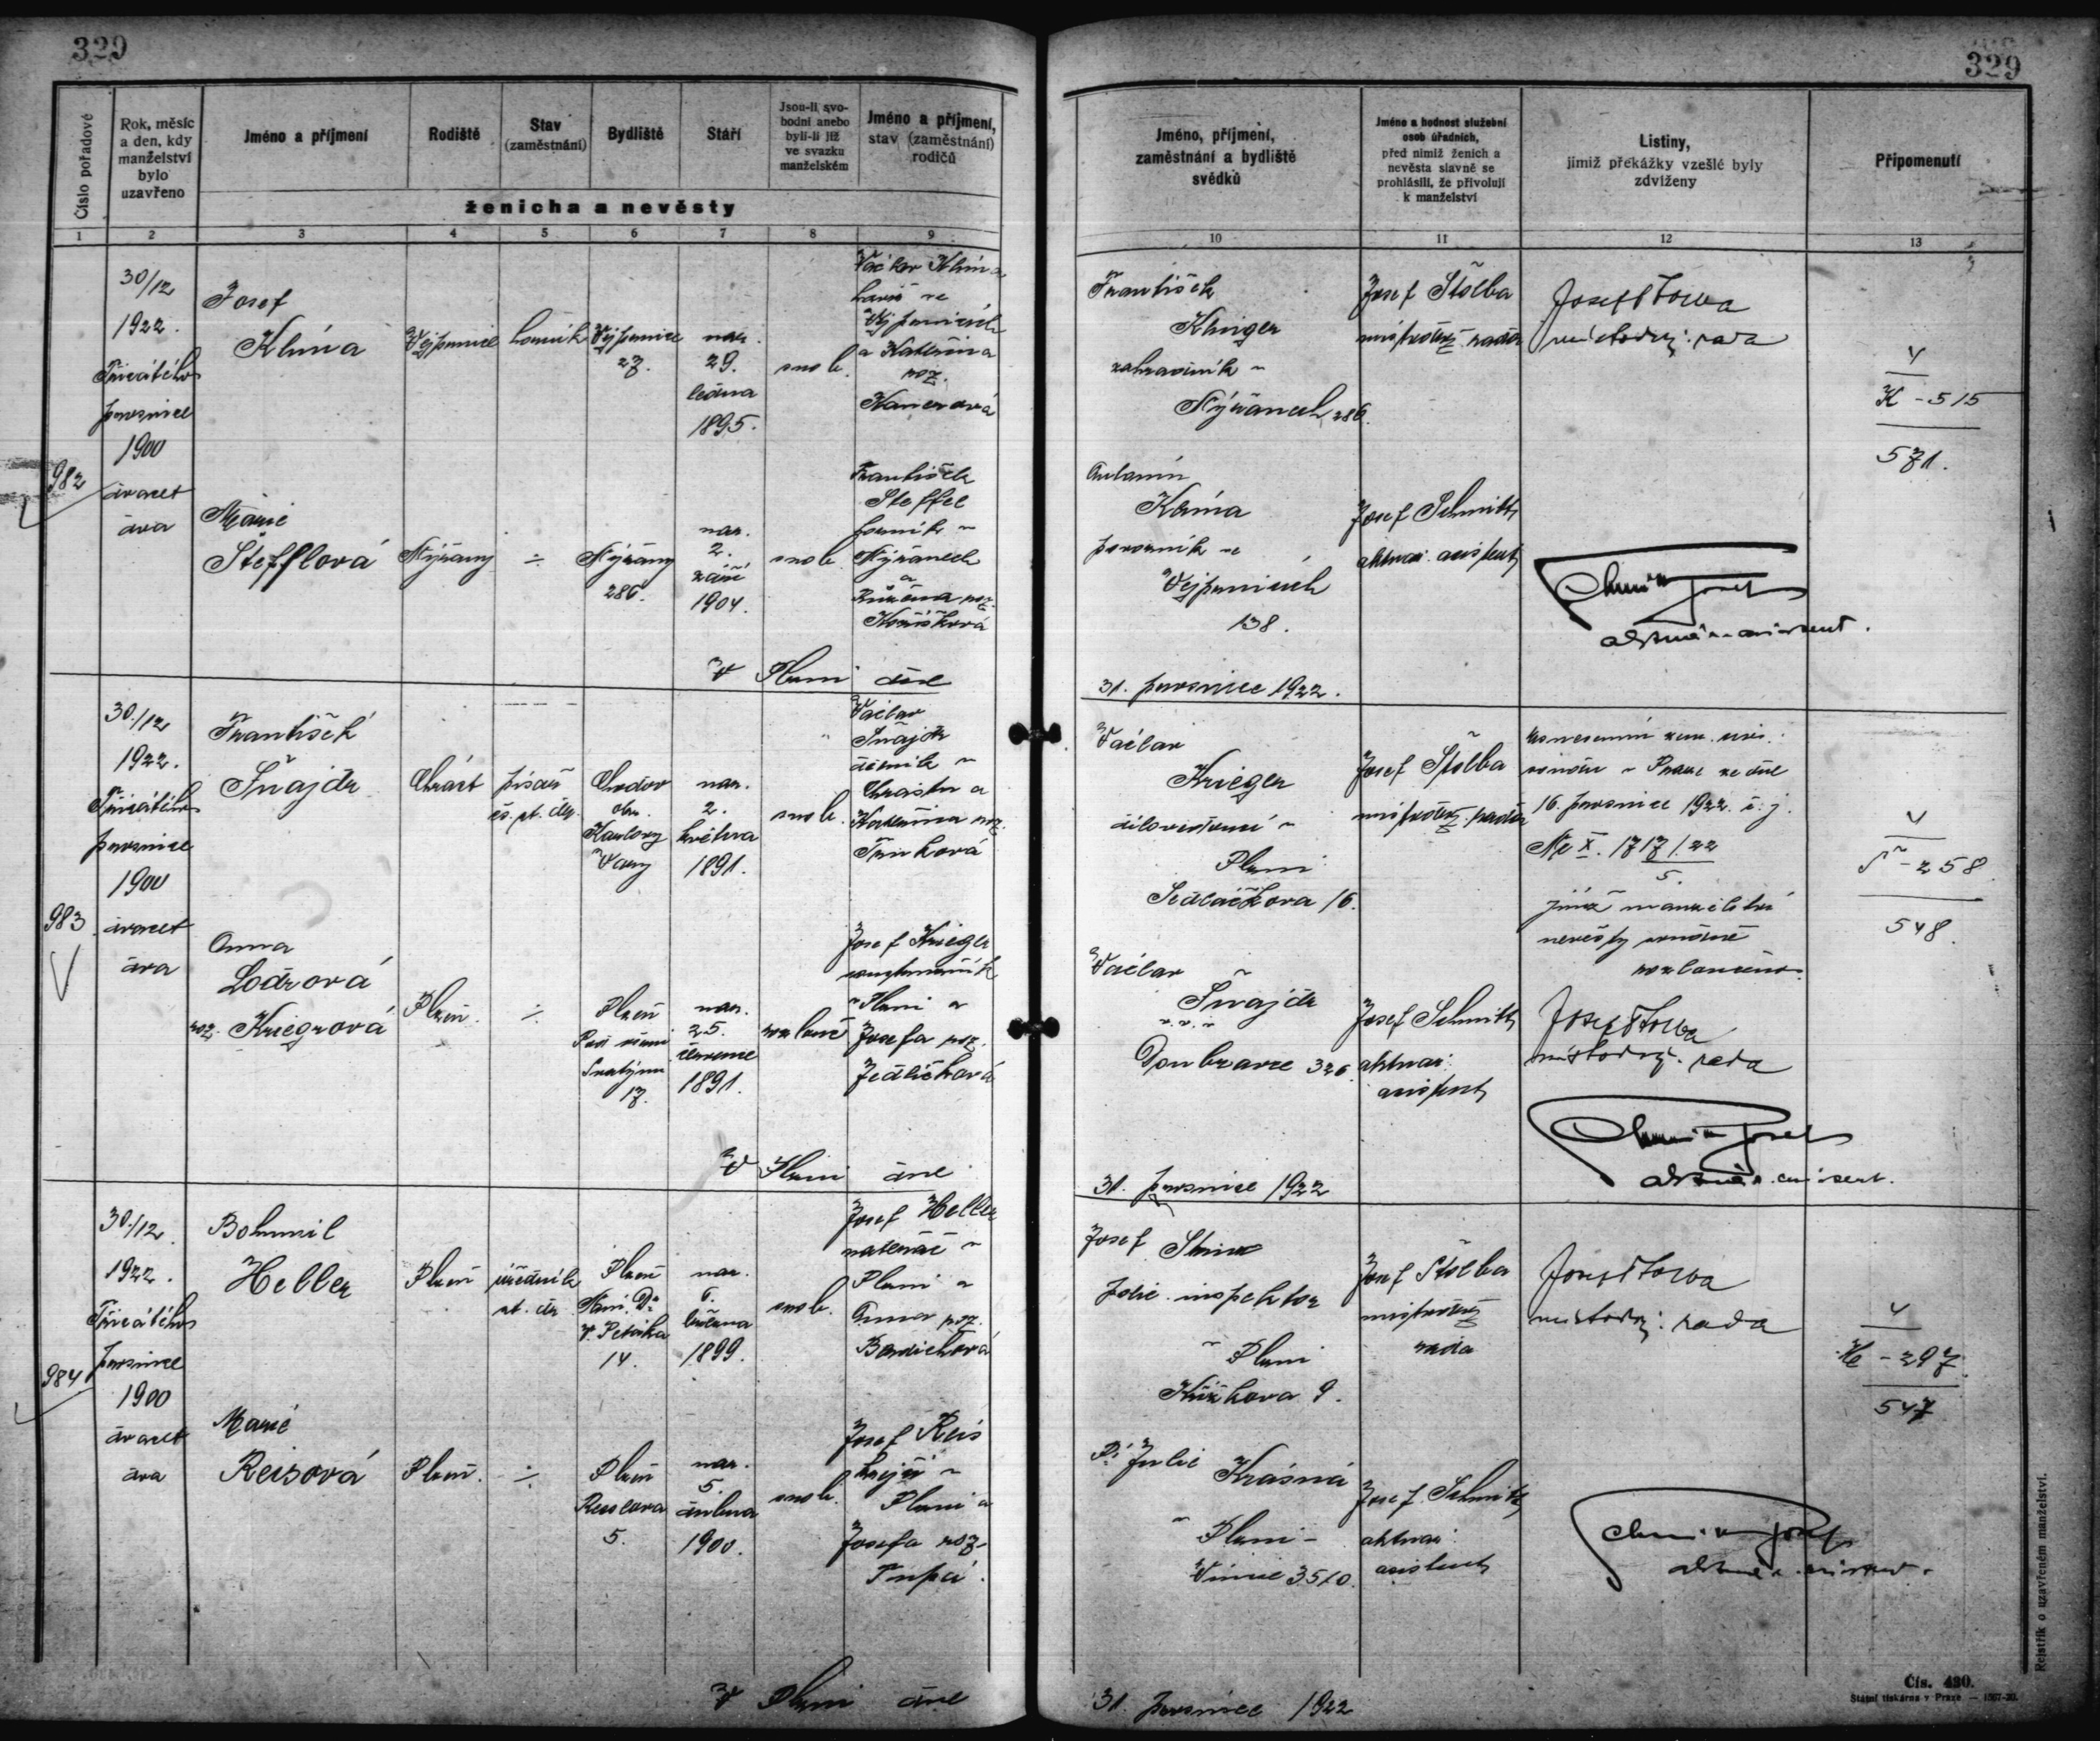 329
329
Číslo pořadové
Rok, měsíc
a den, kdy
manželství
bylo
uzavřeno
Jméno a příjmení
Rodiště
Stav
(zaměstnání)
Bydliště
Stáří
Jsou-li svo-
bodni anebo
byli-li již
ve svazku
manželském
Jméno a příjmení,
stav (zaměstnání)
rodičů
ženicha a nevěsty
1 2 3 4 5 6 7 8 9
Jméno, příjmení,
zaměstnání a bydliště
svědků
Jméno a hodnost služební
osob úředních,
před nimiž ženich a
nevěsta slavně se
prohlásili, že přivolují
k manželství
Listiny,
jimiž překážky vzešlé byly
zdviženy
Připomenutí
10 11 12 13
982
30/12
1922.
Třicátého
prosince
1900
dvacet
dva
Josef
Klíma
Vejprnice
horník
Vejprnice
27.
nar.
29.
ledna
1895.
svob.
Václav Klíma
ve
Vejprnicích
a Kateřina
roz.
Marie
Štefflová
Nýřany
÷
Nýřany
286.
nar.
2.
září
1904.
svob.
František
Steffel
horník v
Nýřanech
a
Růžena roz.
František
Klinger
zahradník v
Nýřanech 286.
Antonín
Klíma
ve
Vejprnicích
138.
Josef Štolba
místodrž. rada
Josef Schmitt
aktuár. asistent
Josef Štolba
místodrž. rada
V
K - 515
571.
V Plzni dne
31. prosince 1922.
983
30./12
1922.
Třicátého
prosince
1900
dvacet
dva
František
Šnajdr
Chrást
písař
čs. st. dr.
Chodov
okr.
Karlovy
Vary
nar.
2.
května
1891.
svob.
Václav
Šnajdr
dělník v
Chrástu a
Kateřina roz.
Anna
Lodrová
roz. Kriegrová
Plzeň.
÷
Plzeň
Pod všemi
Svatými
17.
nar.
25.
července
1891.
rozluč.
Josef Krieger
v Plzni a
Josefa roz.
Jedličková
Václav
Krieger
v
Plzni
Sedláčkova 16.
Václav
Šnajdr
Doubravce 326.
Josef Štolba
místodrž. rada
Josef Schmitt
aktuár.
asistent
Usnesením zem. civ.
soudu v Praze ze dne
16. prosince 1922 č. j.
Nc X. 1717/22
5.
jímž manželství
nevěsty
rozloučeno.
Josef Štolba
místodrž. rada
V
Š - 258.
548.
V Plzni dne
31. prosince 1922
984
30./12.
1922.
Třicátého
prosince
1900
dvacet
dva
Bohumil
Heller
Plzeň
úředník
st. dr.
Plzeň
Nám. Dr.
P. Petáka
14.
nar.
6.
března
1899.
svob.
Josef Heller
v
Plzni a
Anna roz.
Marie
Reisová
Plzeň.
÷
Plzeň
5.
nar.
5.
dubna
1900.
svob.
Josef Reis
krejčí v
Plzni a
Josefa roz.
Josef
polic. inspektor
v Plzni
Křižíkova 9.
Julie Krásná
v Plzni -
Vinice 3510.
Josef Štolba
místodrž.
rada
Josef Schmitt
aktuár.
asistent
Josef Štolba
místodrž. rada
V
H - 297.
547
V Plzni dne
31. prosince 1922
Rejstřík o uzavřeném manželství.
Čís. 420.
Státní tiskárna v Praze